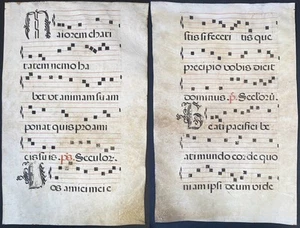 Maiorem chari
tatem nemo ha
bet ut animam suam
ponat quis pro ami
cis suis. ps. Seculor.
Vos amici mei e
stis si feceri tis que
precipio vobis dicit
dominus. p. Seeloru.
Beati pacifici be
ati mundo corde quo
niam ipsi deum vide